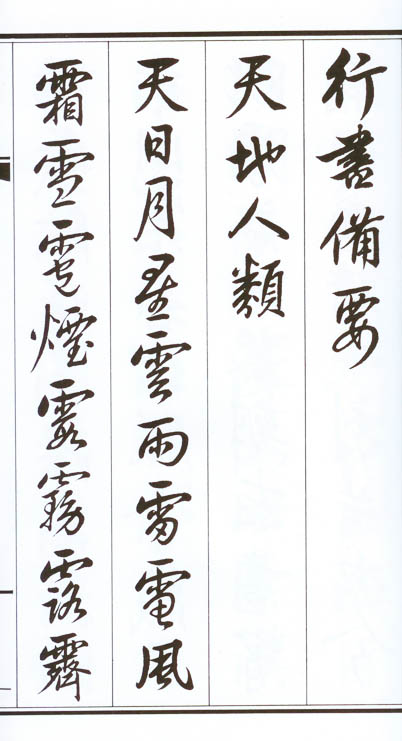 行書備要
天地人類
天日月星雲雨雷電風
霜雪雹煙霞霧露霽